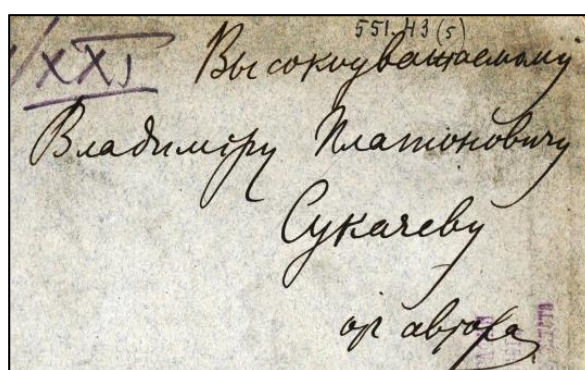 551.43(5)
/XXI Высокоуважаемому
Владиміру Платоновичу
Сукачеву
от автора